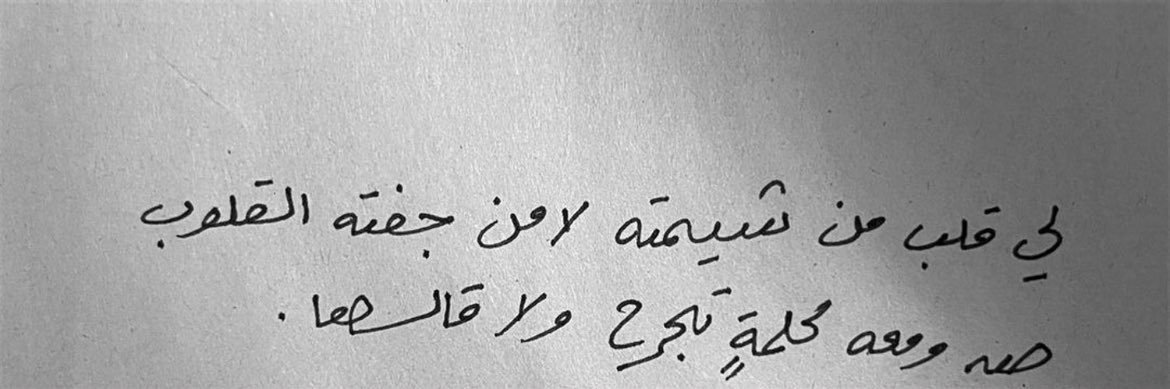 لي قلب من شيمته لا من جفته القلوب
صد ومعه كلمةٍ تجرح ولا قالها.